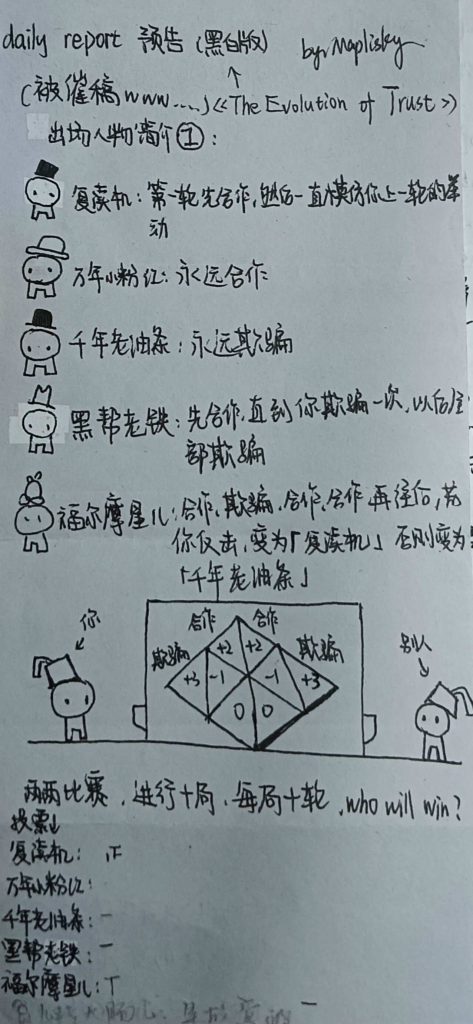 daily report 预告 (黑白版) by. Maplisky
(被催稿www....) 《The Evolution of Trust》
出场人物简介①:
复读机: 第一轮先合作,然后一直模仿你上一轮的举
动
万年小粉红: 永远合作
千年老油条: 永远欺骗
黑帮老铁: 先合作,直到你欺骗一次,以后全
部欺骗
福尔摩星儿: 合作,欺骗,合作,合作,再往后,若
你反击,变为「复读机」 否则变为
「千年老油条」
你
合作 合作
欺骗 +2 +2 欺骗
别人
+3 -1 -1 +3
0 0
两两比赛,进行十局,每局十轮,who will win?
投票↓
复读机: 正
万年小粉红:
千年老油条: 一
黑帮老铁: 一
福尔摩星儿: T